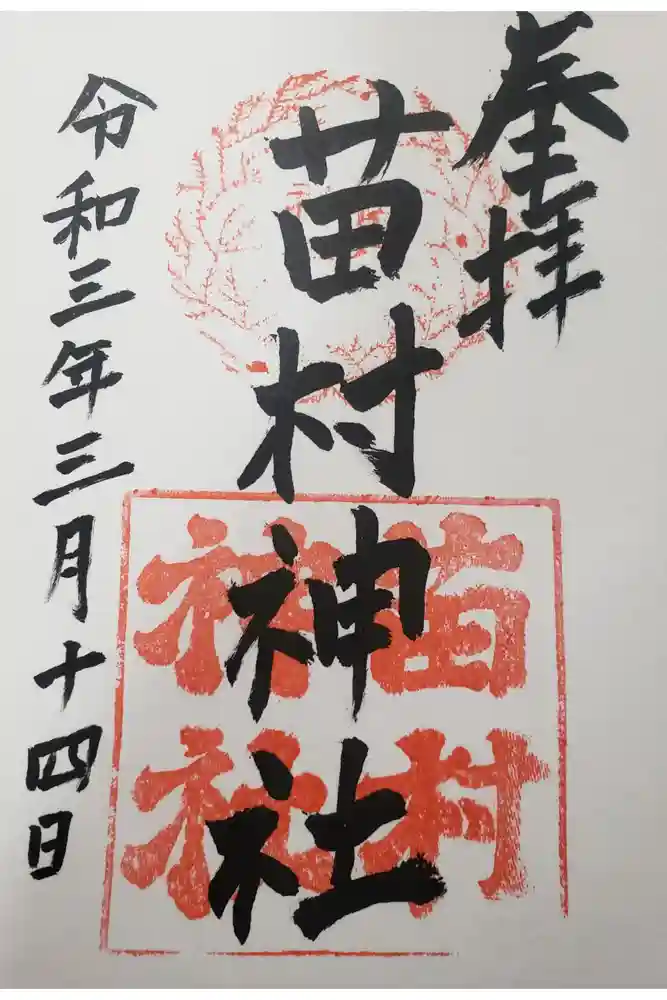 奉拝
苗村神社
令和三年三月十四日
苗村
神社